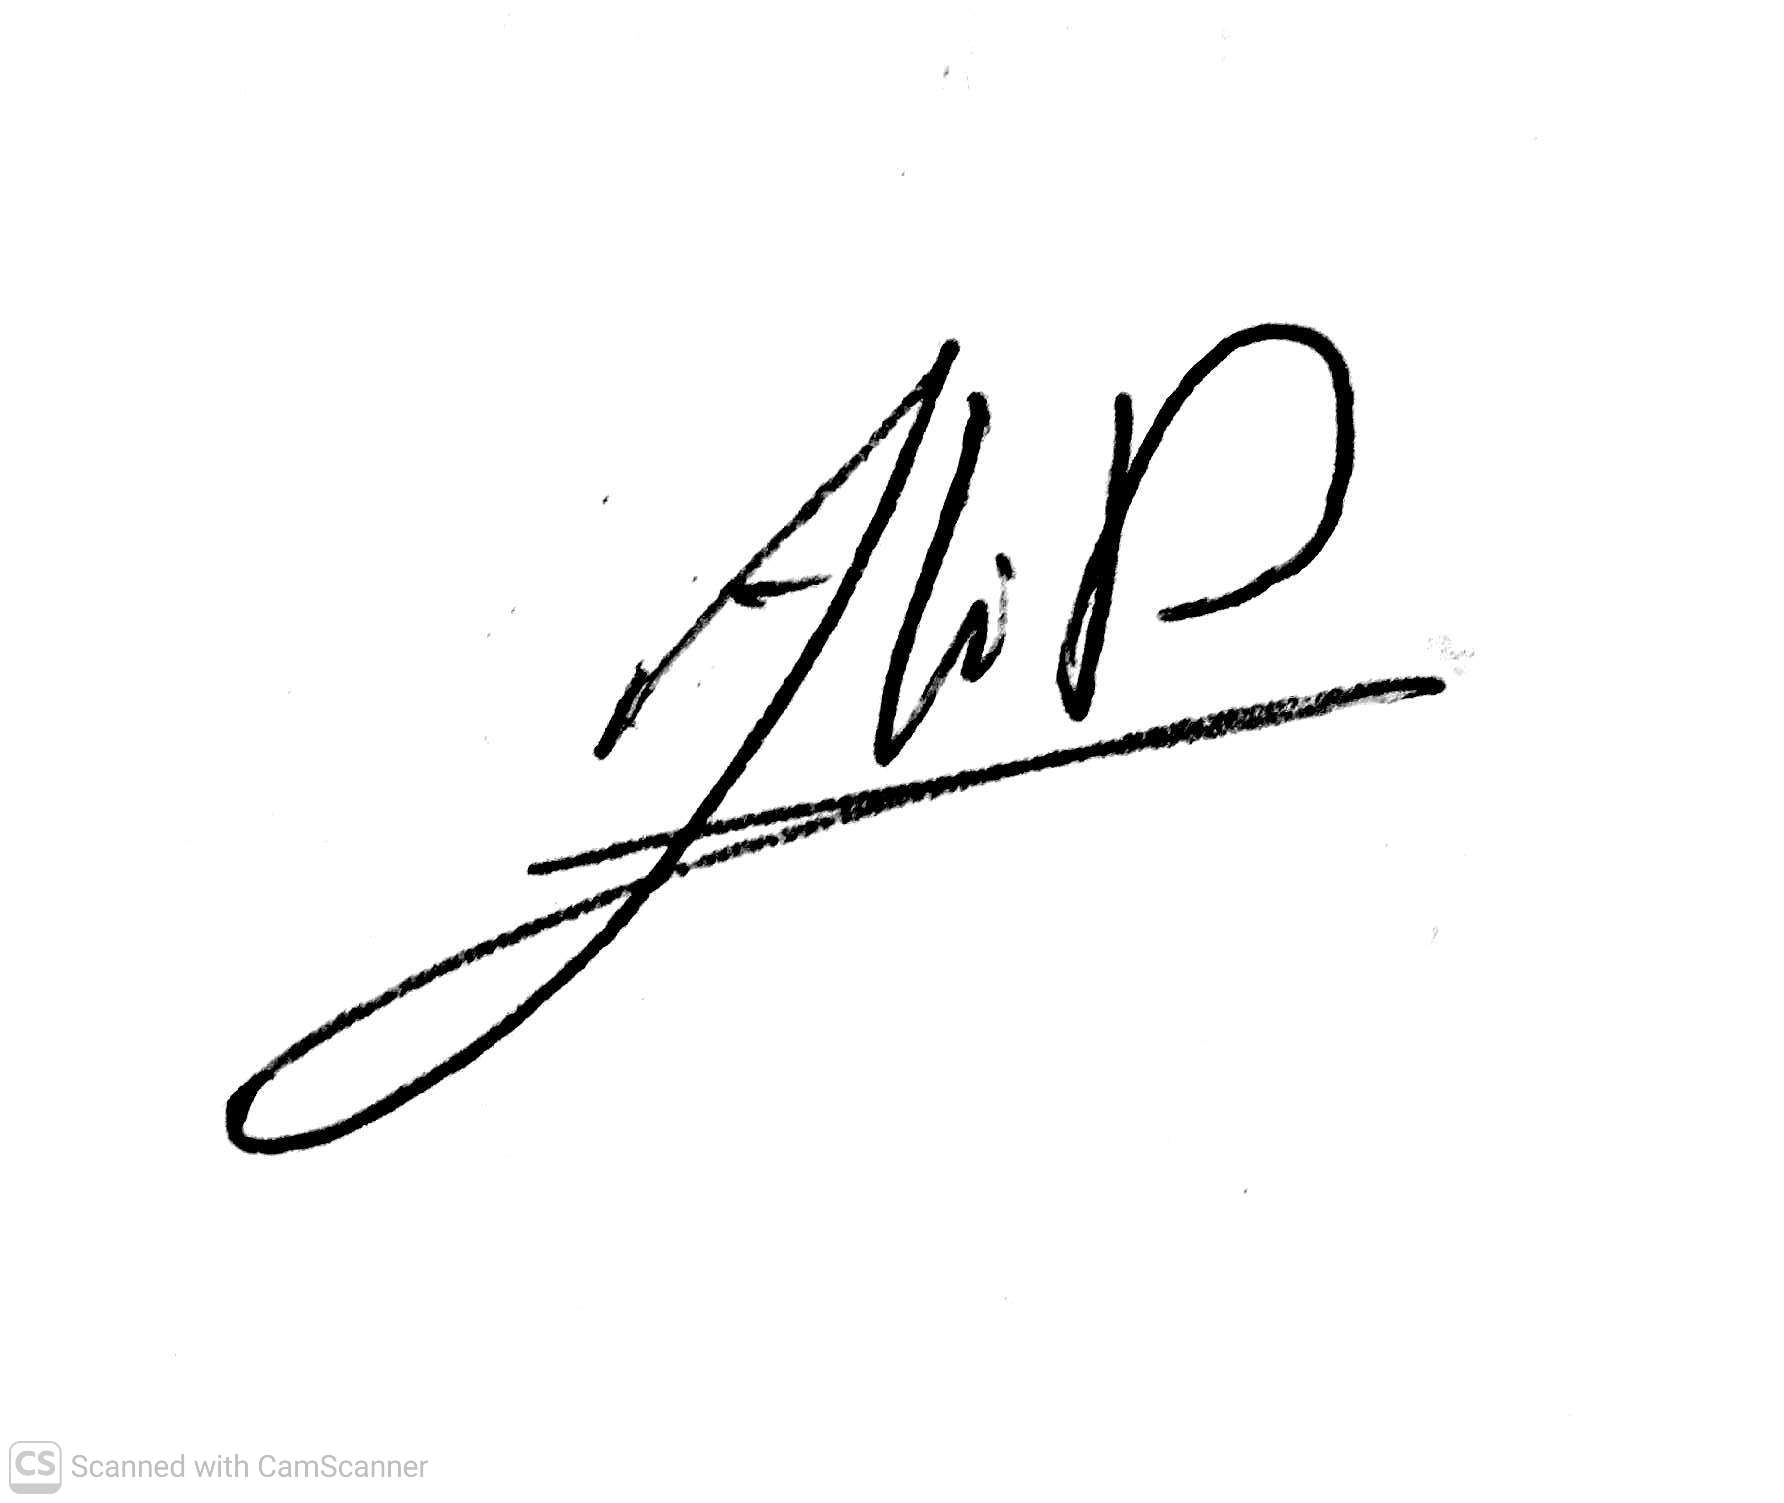 Ali P
CS Scanned with CamScanner